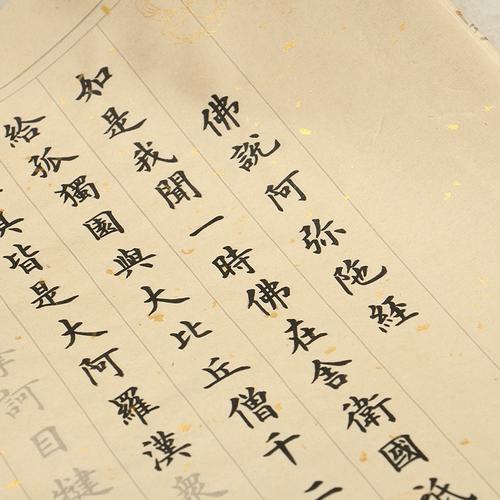 佛說阿弥陁經
如是我聞一時佛在舍衛國祇
給孤獨園與大比丘僧千二
皆是大阿羅漢眾
訶目犍